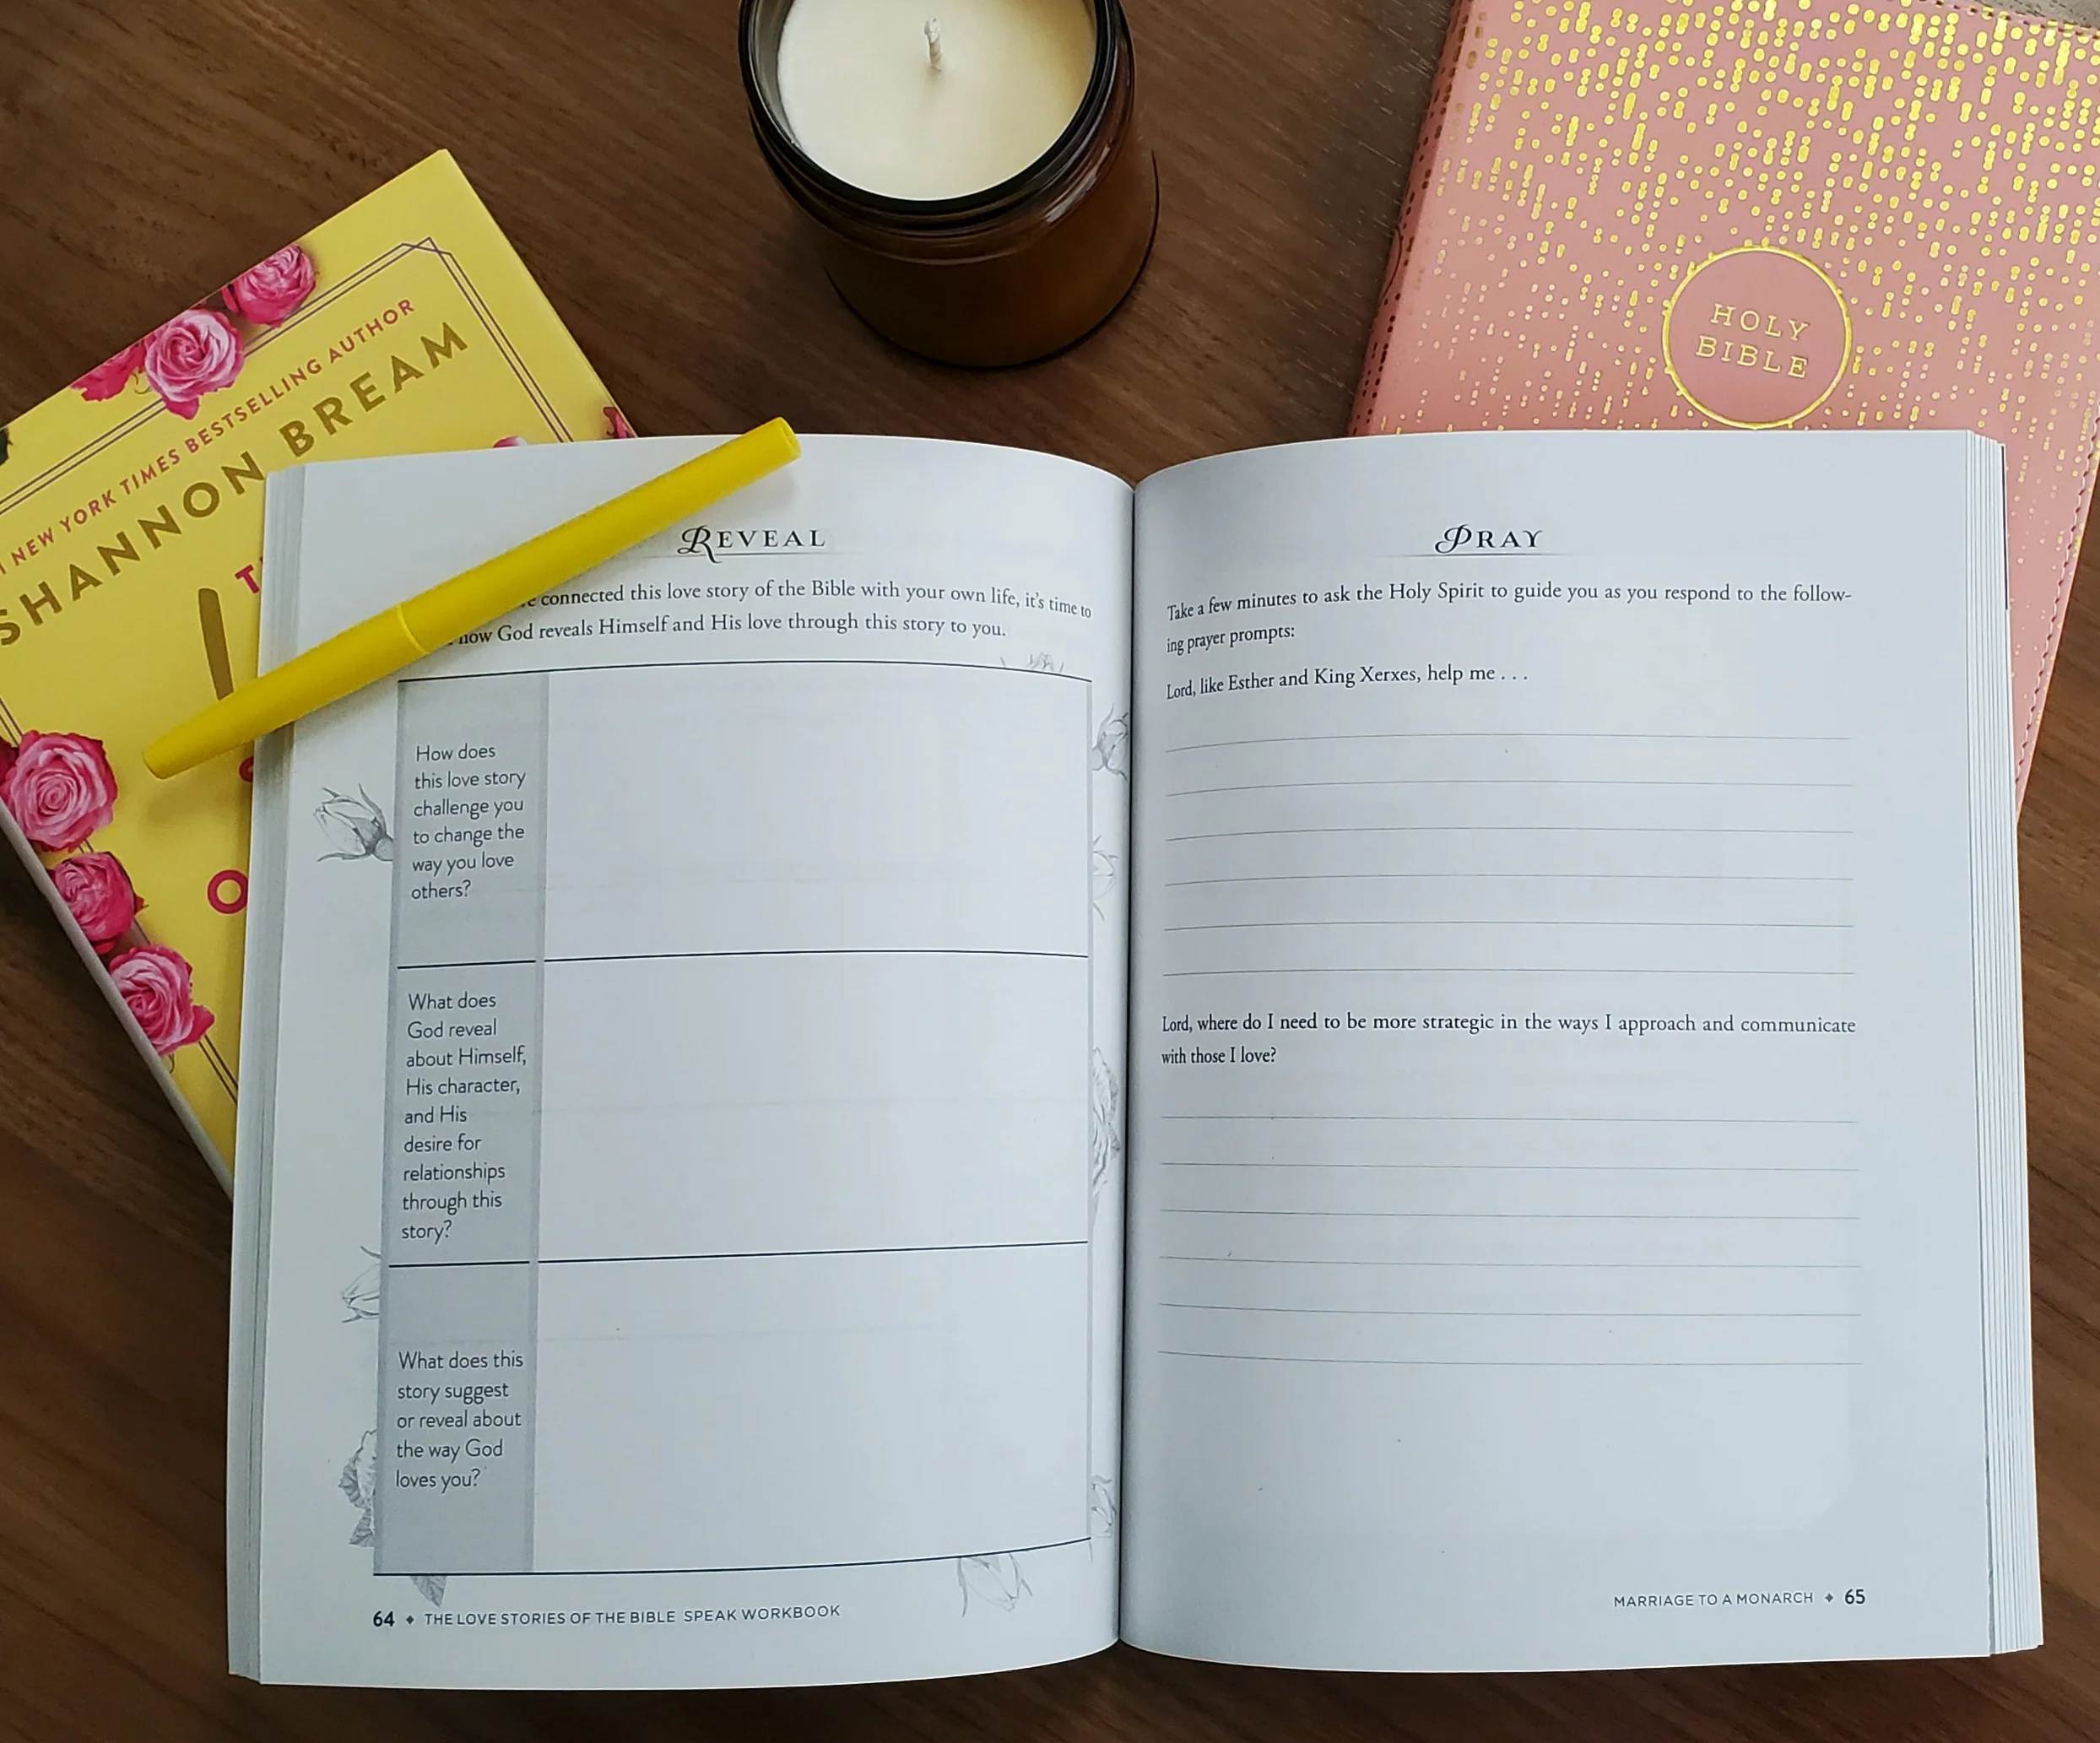 NEW YORK TIMES BESTSELLING AUTHOR
SHANNON BREAM
HOLY
BIBLE
REVEAL
connected this love story of the Bible with your own life, it's time to
how God reveals Himself and His love through this story to you.
How does
this love story
challenge you
to change the
way you love
others?
What does
God reveal
about Himself,
His character,
and His
desire for
relationships
through this
story?
What does this
story suggest
or reveal about
the way God
loves you?
64 ◆ THE LOVE STORIES OF THE BIBLE SPEAK WORKBOOK
PRAY
Take a few minutes to ask the Holy Spirit to guide you as you respond to the follow-
ing prayer prompts:
Lord, like Esther and King Xerxes, help me . . .
Lord, where do I need to be more strategic in the ways I approach and communicate
with those I love?
MARRIAGE TO A MONARCH ◆ 65